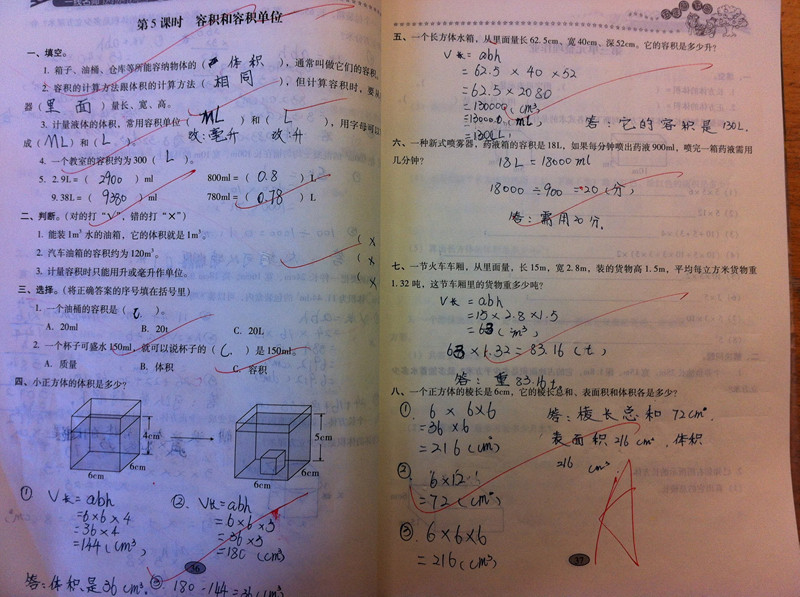 第5课时 容积和容积单位
一、填空。
1. 箱子、油桶、仓库等所能容纳物体的( 体积 ),通常叫做它们的容积。
2. 容积的计算方法跟体积的计算方法( 相同 ),但计算容积时,要从
器( 里面 )量长、宽、高。
3. 计量液体的体积,常用容积单位( ML )和( L ),用字母可以
成( ML )和( L )。 改:毫升 改:升
4. 一个教室的容积约为300( L )。
5. 2.9L=( 2900 )ml 800ml=( 0.8 )L
9.38L=( 9380 )ml 780ml=( 0.78 )L
二、判断。(对的打“√”,错的打“×”)
1. 能装1m³水的油箱,它的体积就是1m³。
2. 汽车油箱的容积约为120m³。 ( ×
3. 计量容积时只能用升或毫升作单位。 ( ×
三、选择。(将正确答案的序号填在括号里)
1. 一个油桶的容积是( c )。
A. 20ml B. 20t C. 20L
2. 一个杯子可盛水150ml,就可以说杯子的( C )是150ml。
A. 质量 B. 体积 C. 容积
四、小正方体的体积是多少?
4cm
6cm
6cm
5cm
6cm
6cm
① V长=abh
=6×6×4
=36×4
=144(cm³)
② V长=abh
=6×6×5
=36×5
=180(cm³)
③ 180-144=36(cm³)
答:体积是36cm³。
36
五、一个长方体水箱,从里面量长62.5cm、宽40cm、深52cm,它的容积是多少升?
V长=abh
=62.5×40×52
=62.5×2080
=130000(cm³)
=130000(mL)
=130(L)
答:它的容积是130L.
六、一种新式喷雾器,药液箱的容积是18L,如果每分钟喷出药液900ml,喷完一箱药液需用
几分钟?
18L=18000ml
18000÷900=20(分)
答:需用20分.
七、一节火车车厢,从里面量,长15m,宽2.8m,装的货物高1.5m,平均每立方米货物重
1.32吨,这节车厢里的货物重多少吨?
V长=abh
=15×2.8×1.5
=63(m³)
63×1.32=83.16(t)
答:重83.16t.
八、一个正方体的棱长是6cm,它的棱长总和、表面积和体积各是多少?
① 6×6×6
=36×6
=216(cm²)
② 6×12
=72(cm²)
③ 6×6×6
=216(cm³)
答:棱长总和72cm²
表面积216cm²,体积
216 cm³
A
37